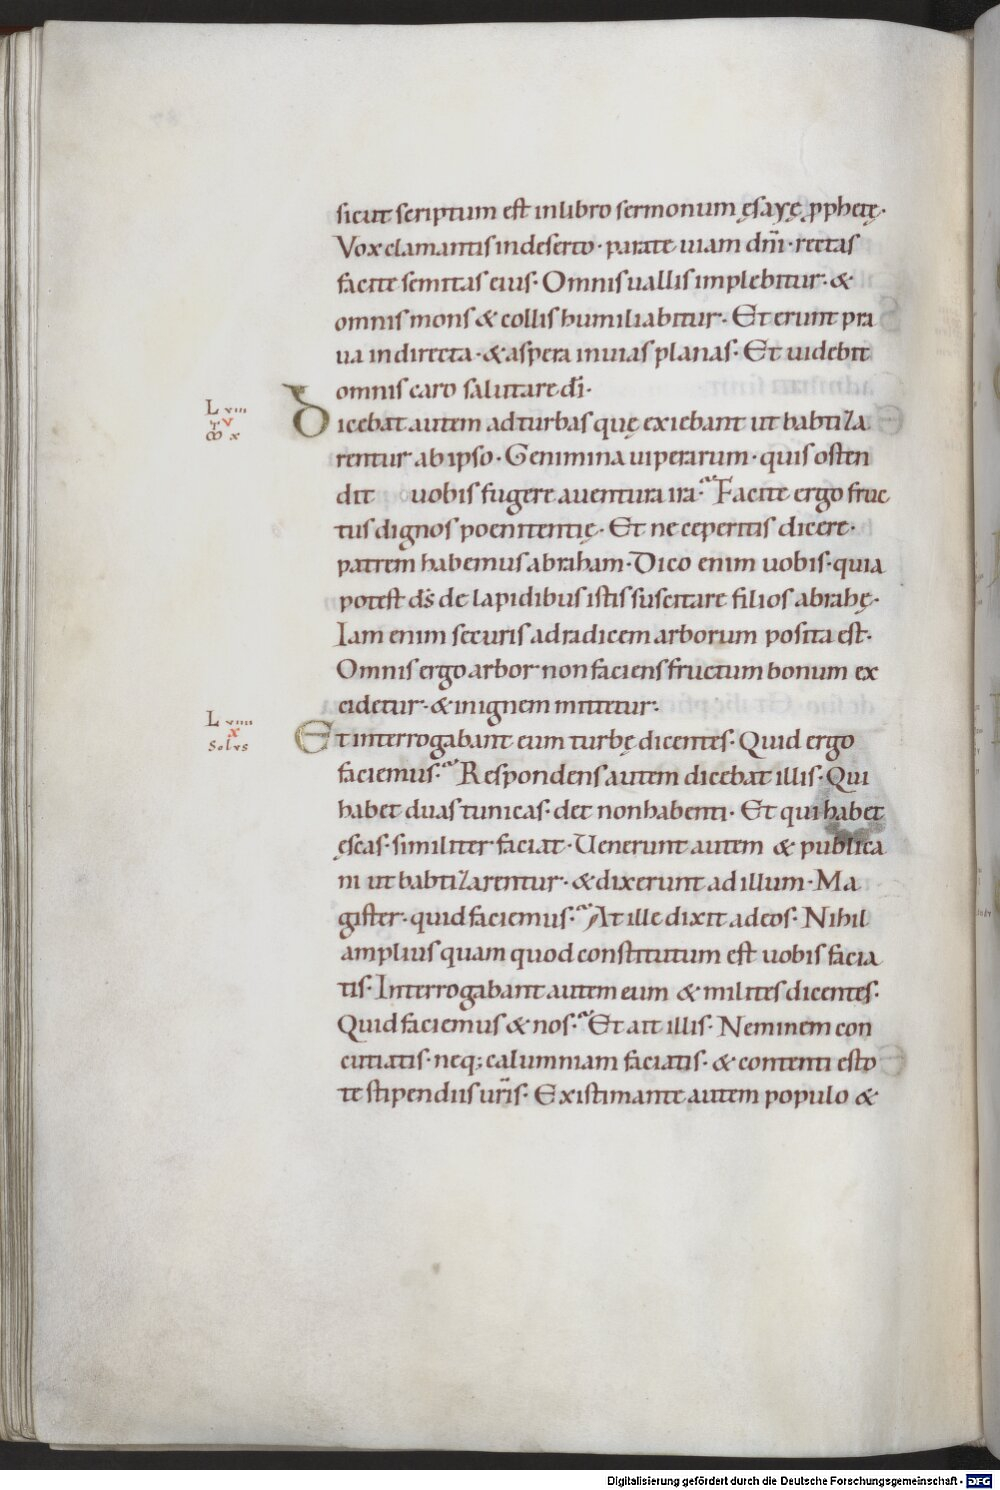 sicut scriptum est in libro sermonum ęsayę ꝓphetę·
Vox clamantis in deserto· parate uiam dñi· rectas
facite semitas eius· Omnis uallis implebitur· &
omnis mons & collis humiliabitur· Et erunt pra
ua in directa· & aspera in uias planas· Et uidebit
omnis caro salutare dī·
L viii
v
x
Dicebat autem ad turbas quę exiebant ut babtiza
rentur ab ipso· Genimina uiperarum· quis osten
dit uobis fugere a uentura ira? Facite ergo fruc
tus dignos poenitentię· Et ne ceperitis dicere·
patrem habemus abraham· Dico enim uobis· quia
potest ds̄ de lapidibus istis suscitare filios abrahę·
Iam enim securis ad radicem arborum posita est·
Omnis ergo arbor non faciens fructum bonum ex
cidetur· & in ignem mittetur·
L viiii
x
Solvs
Et interrogabant eum turbę dicentes· Quid ergo
faciemus? Respondens autem dicebat illis· Qui
habet duas tunicas· det non habenti· Et qui habet
ęscas· similiter faciat· Uenerunt autem & publica
ni ut babtizarentur· & dixerunt ad illum· Ma
gister· quid faciemus? At ille dixit ad eos· Nihil
amplius quam quod constitutum est uobis facia
tis· Interrogabant autem eum & milites dicentes·
Quid faciemus & nos? Et ait illis· Neminem con
cutiatis· neq; calumniam faciatis· & contenti esto
te stipendiis ur̄is· Existimante autem populo &
Digitalisierung gefördert durch die Deutsche Forschungsgemeinschaft - DFG